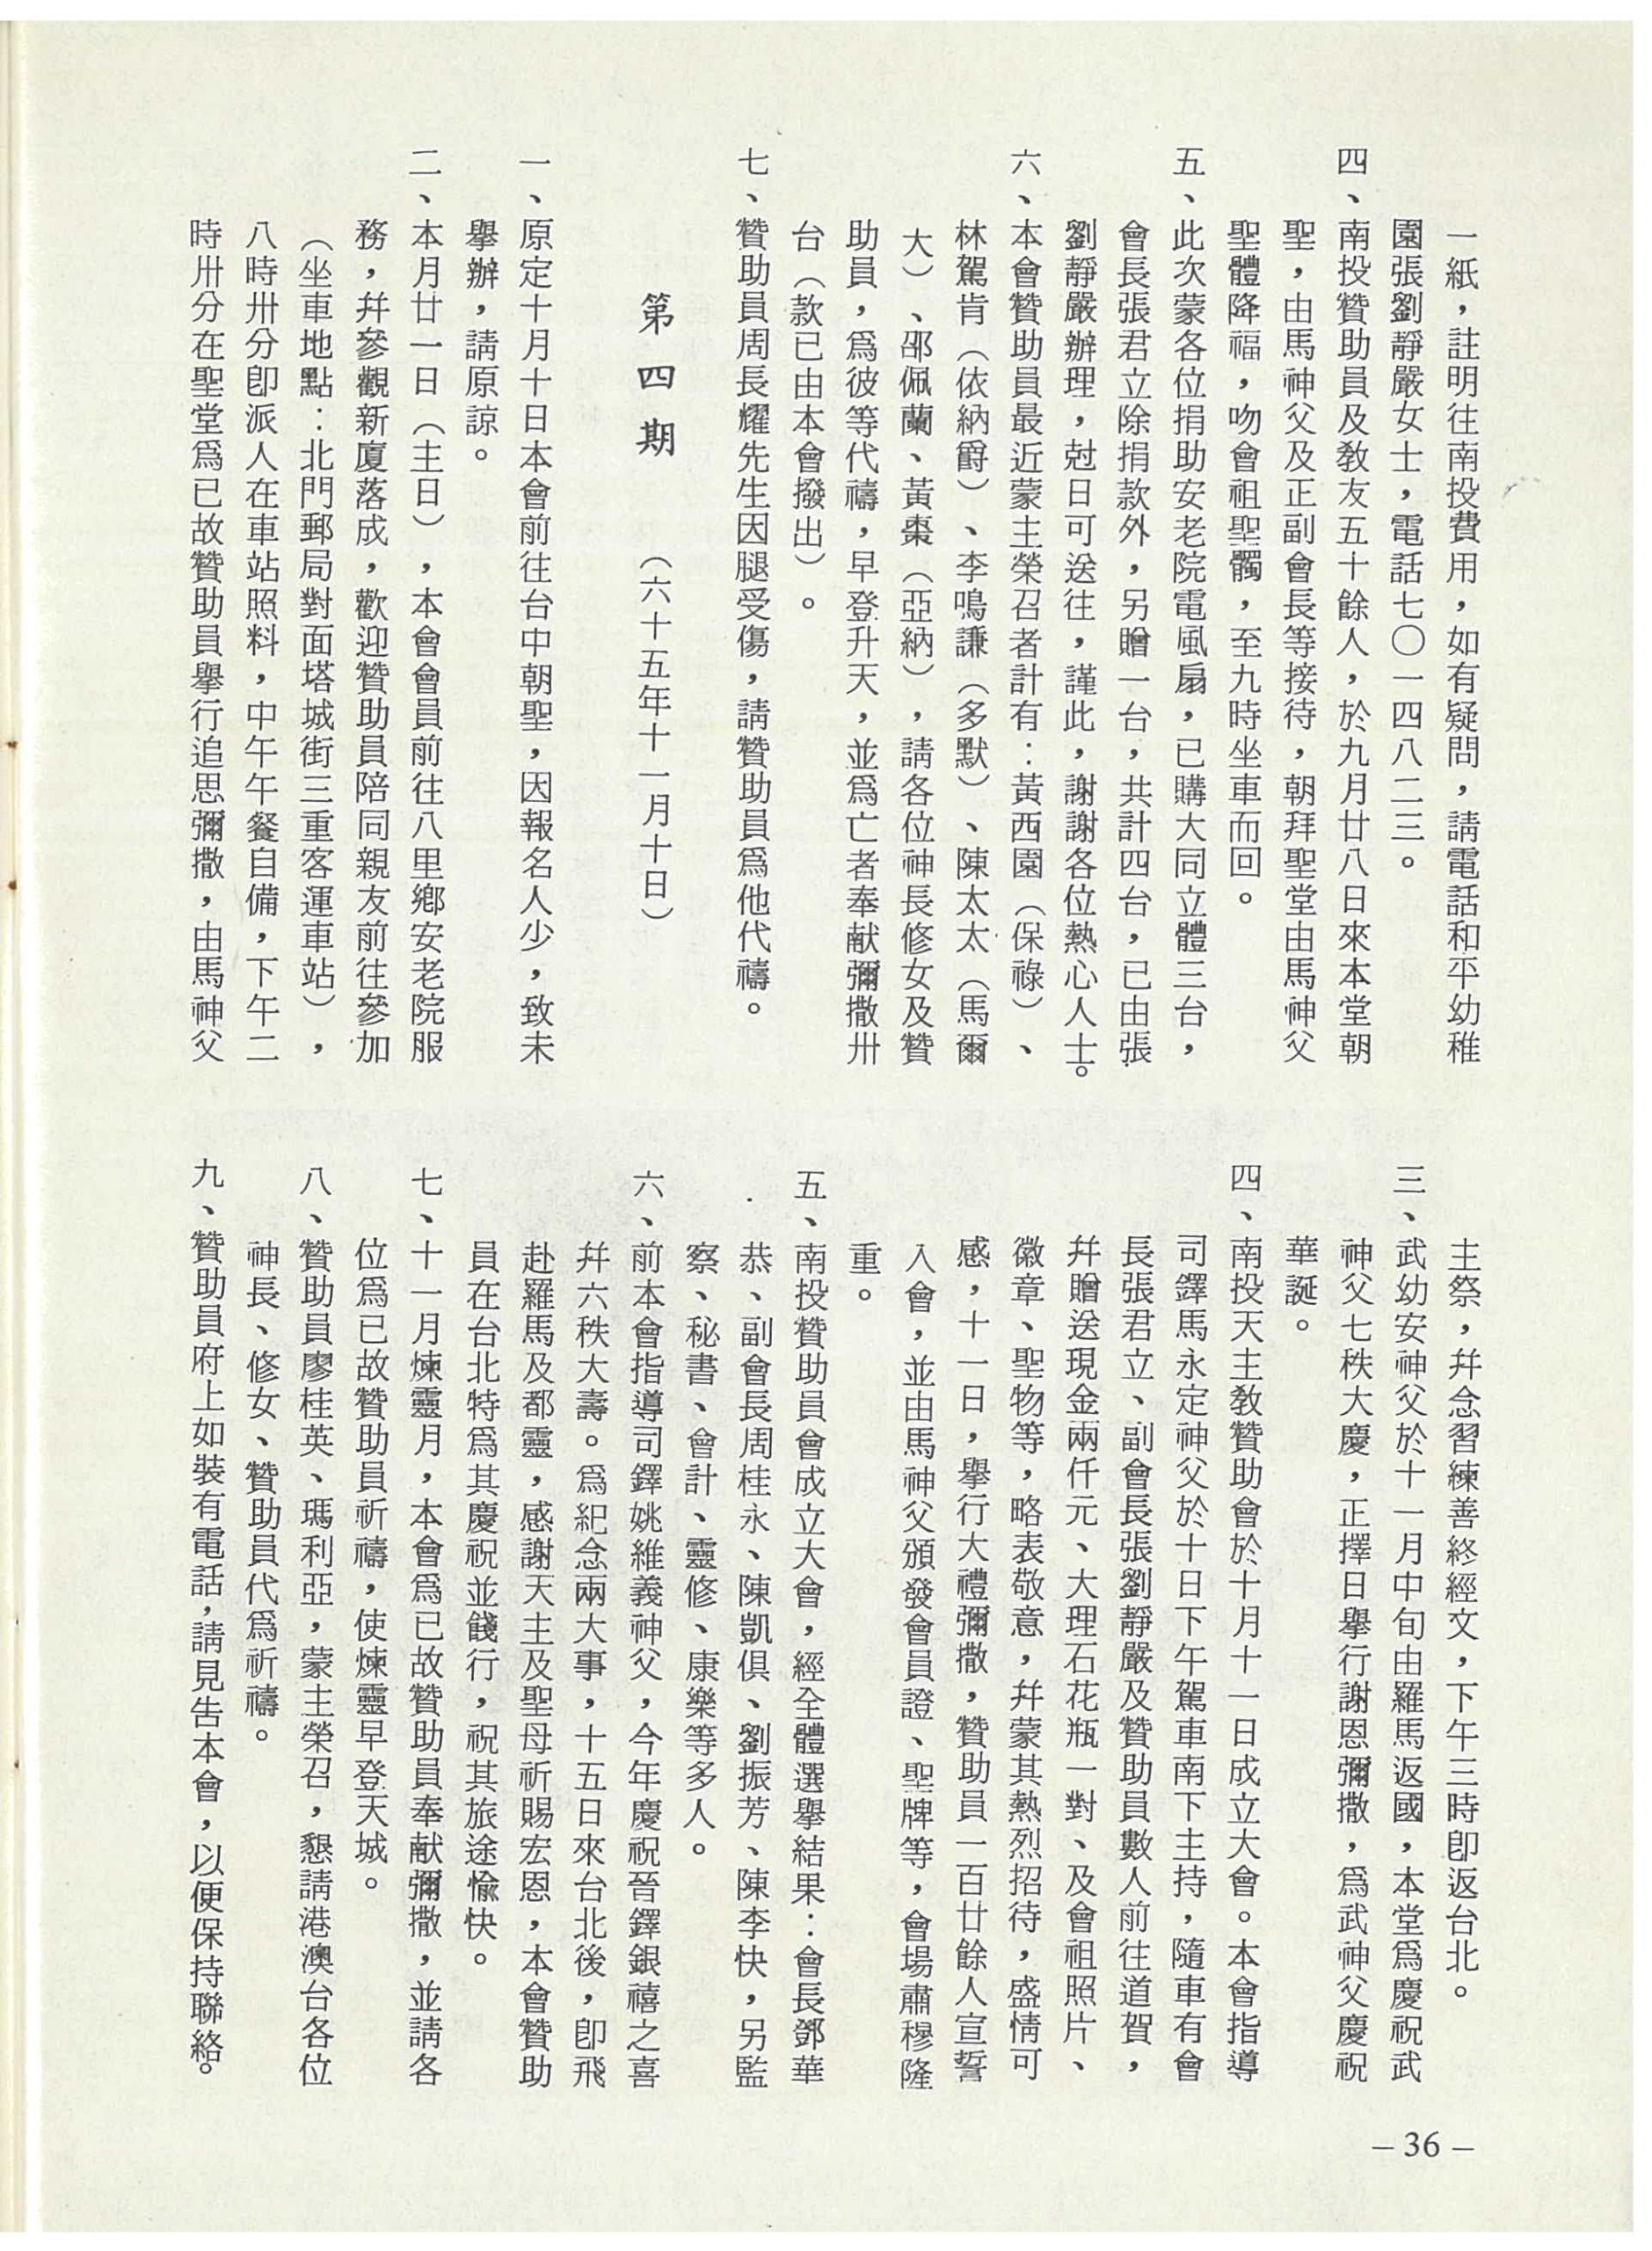 一紙，註明往南投費用，如有疑問，請電話和平幼稚
園張劉靜嚴女士，電話七〇一四八二三。
四、南投贊助員及敎友五十餘人，於九月廿八日來本堂朝
聖，由馬神父及正副會長等接待，朝拜聖堂由馬神父
聖體降福，吻會祖聖髑，至九時坐車而回。
五、此次蒙各位捐助安老院電風扇，已購大同立體三台，
會長張君立除捐款外，另贈一台，共計四台，已由張
劉靜嚴辦理，尅日可送往，謹此，謝謝各位熱心人士。
六、本會贊助員最近蒙主榮召者計有：黃西園（保祿）、
林駕肯（依納爵）、李鳴謙（多默）、陳太太（馬爾
大）、邵佩蘭、黃棗（亞納），請各位神長修女及贊
助員，爲彼等代禱，早登升天，並爲亡者奉献彌撒卅
台（款已由本會撥出）。
七、贊助員周長耀先生因腿受傷，請贊助員爲他代禱。
第四期　（六十五年十一月十日）
一、原定十月十日本會前往台中朝聖，因報名人少，致未
擧辦，請原諒。
二、本月廿一日（主日），本會會員前往八里鄉安老院服
務，幷參觀新廈落成，歡迎贊助員陪同親友前往參加
（坐車地點：北門郵局對面塔城街三重客運車站），
八時卅分卽派人在車站照料，中午午餐自備，下午二
時卅分在聖堂爲已故贊助員擧行追思彌撒，由馬神父
主祭，幷念習練善終經文，下午三時卽返台北。
三、武幼安神父於十一月中旬由羅馬返國，本堂爲慶祝武
神父七秩大慶，正擇日擧行謝恩彌撒，爲武神父慶祝
華誕。
四、南投天主敎贊助會於十月十一日成立大會。本會指導
司鐸馬永定神父於十日下午駕車南下主持，隨車有會
長張君立、副會長張劉靜嚴及贊助員數人前往道賀，
幷贈送現金兩仟元、大理石花瓶一對、及會祖照片、
徽章、聖物等，略表敬意，幷蒙其熱烈招待，盛情可
感，十一日，擧行大禮彌撒，贊助員一百廿餘人宣誓
入會，並由馬神父頒發會員證、聖牌等，會場肅穆隆
重。
五、南投贊助員會成立大會，經全體選擧結果：會長鄧華
恭、副會長周桂永、陳凱俱、劉振芳、陳李快，另監
察、秘書、會計、靈修、康樂等多人。
六、前本會指導司鐸姚維義神父，今年慶祝晉鐸銀禧之喜
幷六秩大壽。爲紀念兩大事，十五日來台北後，卽飛
赴羅馬及都靈，感謝天主及聖母祈賜宏恩，本會贊助
員在台北特爲其慶祝並餞行，祝其旅途愉快。
七、十一月煉靈月，本會爲已故贊助員奉献彌撒，並請各
位爲已故贊助員祈禱，使煉靈早登天城。
八、贊助員廖桂英、瑪利亞，蒙主榮召，懇請港澳台各位
神長、修女、贊助員代爲祈禱。
九、贊助員府上如裝有電話，請見吿本會，以便保持聯絡。
– 36 –